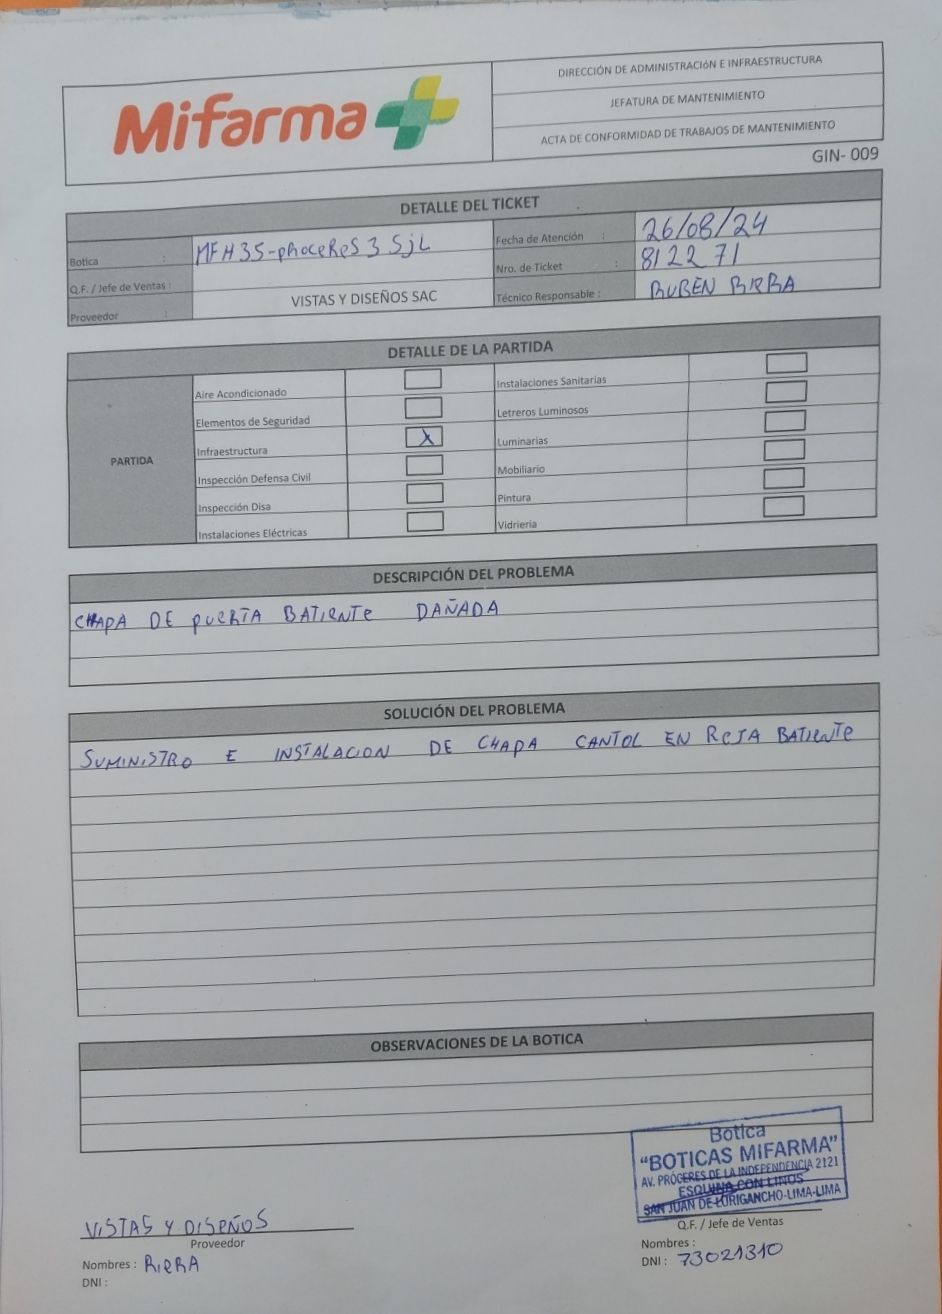 Mifarma
DIRECCIÓN DE ADMINISTRACIÓN E INFRAESTRUCTURA
JEFATURA DE MANTENIMIENTO
ACTA DE CONFORMIDAD DE TRABAJOS DE MANTENIMIENTO
GIN- 009
DETALLE DEL TICKET
Botica : MFH35-pRoceReS 3 SjL
Fecha de Atención : 26/08/24
Q.F. / Jefe de Ventas :
Nro. de Ticket : 812271
Proveedor : VISTAS Y DISEÑOS SAC
Técnico Responsable : RUBEN RIERA
DETALLE DE LA PARTIDA
PARTIDA
Aire Acondicionado
Instalaciones Sanitarias
Elementos de Seguridad
Letreros Luminosos
Infraestructura X
Luminarias
Inspección Defensa Civil
Mobiliario
Inspección Disa
Pintura
Instalaciones Eléctricas
Vidrieria
DESCRIPCIÓN DEL PROBLEMA
CHAPA DE PUERTA BATIENTE DAÑADA
SOLUCIÓN DEL PROBLEMA
SUMINISTRO E INSTALACION DE CHAPA CANTOL EN REJA BATIENTE
OBSERVACIONES DE LA BOTICA
Botica
“BOTICAS MIFARMA”
AV. PRÓCERES DE LA INDEPENDENCIA 2121
ESQUINA CON LINOS
SAN JUAN DE LURIGANCHO-LIMA-LIMA
VISTAS Y DISEÑOS
Proveedor
Nombres : RIERA
DNI :
Q.F. / Jefe de Ventas
Nombres :
DNI : 73021310